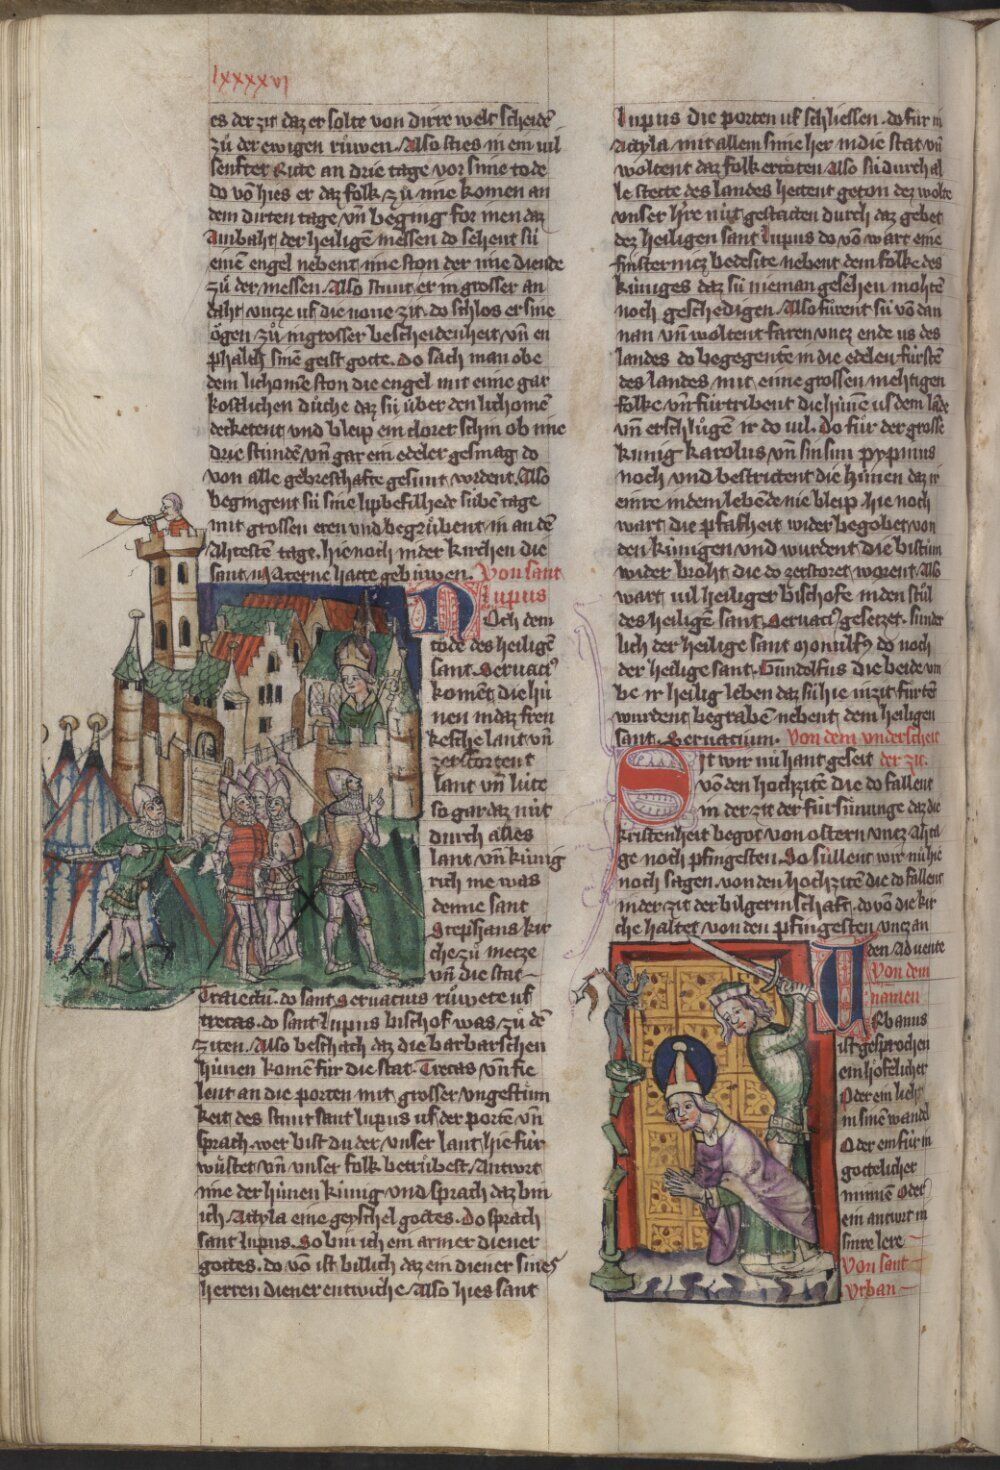 lxxxxvi
es der zit daz er solte von dirre welt scheidē
zů der ewigen růwen. Also sties in ein vil
senfter Ritte an drie tage vor sime tode
do vō hies er daz folk zů ime komen an
dem dirten tage vn̄ beging for inen daz
Ambaht der heiligē messen do sehent sú
einē engel nebent ime ston der ime diende
zů der messen. Also stunt er in grosser an
daht vncze uf die none zit. do schlos er sine
ögen zů in grosser bescheidenheit vn̄ en
phalch sinē geist gotte. Do sach man obe
dem lichomē ston die engel mit eime gar
kostlichen důche daz sú über den lichomē
decketent vnd bleip ein clorer schin ob ime
drie stundē vn̄ gar ein edeler gesmag do
von alle gebreschafte gesunt wrdent. Also
begingent sú sine lipbefillhede sübē tage
mit grossen eren vnd begrůbent in an dē
Ahtestē tage. hie noch in der kirchen die
sant Materne hatte gebuwen. Von sant
lupus
Noch dem
tode des heiligē
sant. Seruaciꝰ
komēt die hú
nen in daz fren
kesche lant vn̄
zerstortent
lant vn̄ lúte
so gar daz nút
durch alles
lant vn̄ kúnig
rich me was
denne sant
Stephans kir
che zů mecze
vn̄ die stat
Traiectū. do sant Seruacius růwete uf
trecas. do sant lupus bischof was zů dē
ziten. Also beschach daz die barbarschen
húnen komē fúr die stat. Trecas vn̄ fie
lent an die porten mit grosser vngestúm
keit des stunt sant lupus uf der portē vn̄
sprach. wer bist du der vnser lant hie fúr
wůstet vn̄ vnser folk betrůbest. Antwrt
ime der húnen kúnig vnd sprach daz bin
ich Attyla eine geyschel gottes. Do sprach
sant lupus. So bin ich ein armer diener
gottes. do vō ist billich daz ein diener sines
herren diener entwiche. Also hies sant
lupus die porten uf schliessen. do fůr in
Attyla mit allem sime her in die stat vn̄
woltent daz folk ertöten Also sú durch al
le stette des landes hettent geton dez wolte
vnser hꝛ̄e nút gestatten durch daz gebet
dez heiligen sant lupus do vō wart eine
finsternicz bedesite nebent dem folke des
kúniges daz sú nieman gesehen mohtē
noch geschedigen. Also fůrent sú vō dan
nan vn̄ woltent faren vncz ende us des
landes do begegentē in die edelen fúrstē
des landes mit eime grossen mehtigen
folke vn̄ fúrtribent die húnē us dem lāde
vn̄ erschlůgē ir do vil. Do fůr der grosse
kúnig karolus vn̄ sin sun pypinus
noch vnd bestritent die húnen daz ir
einre in dem lebēde nie bleip. hie noch
wart die pfafheit wider begobet von
den kúnigen vnd wurdent die bistům
wider broht die do zerstoret worent. Als
wart vil heiliger bischofe in den stůl
des heiligē sant. Seruaciꝰ gesetzet. sunder
lich der heilige sant Monulfꝰ do noch
der heilige sant. Gundolfus die beide vm
be ir heilig leben daz sú hie in zit fůrtē
wurdent begrabē nebent dem heiligen
sant. Seruacium. Von dem vnderscheit
Sit wir nů hant geseit der zit.
vō den hochzitē die do fallent
in der zit der fúrsůnunge daz die
kristenheit begot von ostern vncz Ahta
ge noch pfingesten. So súllent wir nů hie
noch sagen. von den hochzitē die do fallent
in der zit der bilgerinschaft. do vō die kir
che haltet von den pfingesten vncz an
den Aduente
Von dem
namen
Vrbanus
ist gesprochen
ein höfelicher
Oder ein lieht
in sinē wandel
Oder ein fúr in
göttelicher
minnē oder
ein antwrt in
sinre lere
Von sant
Vrban